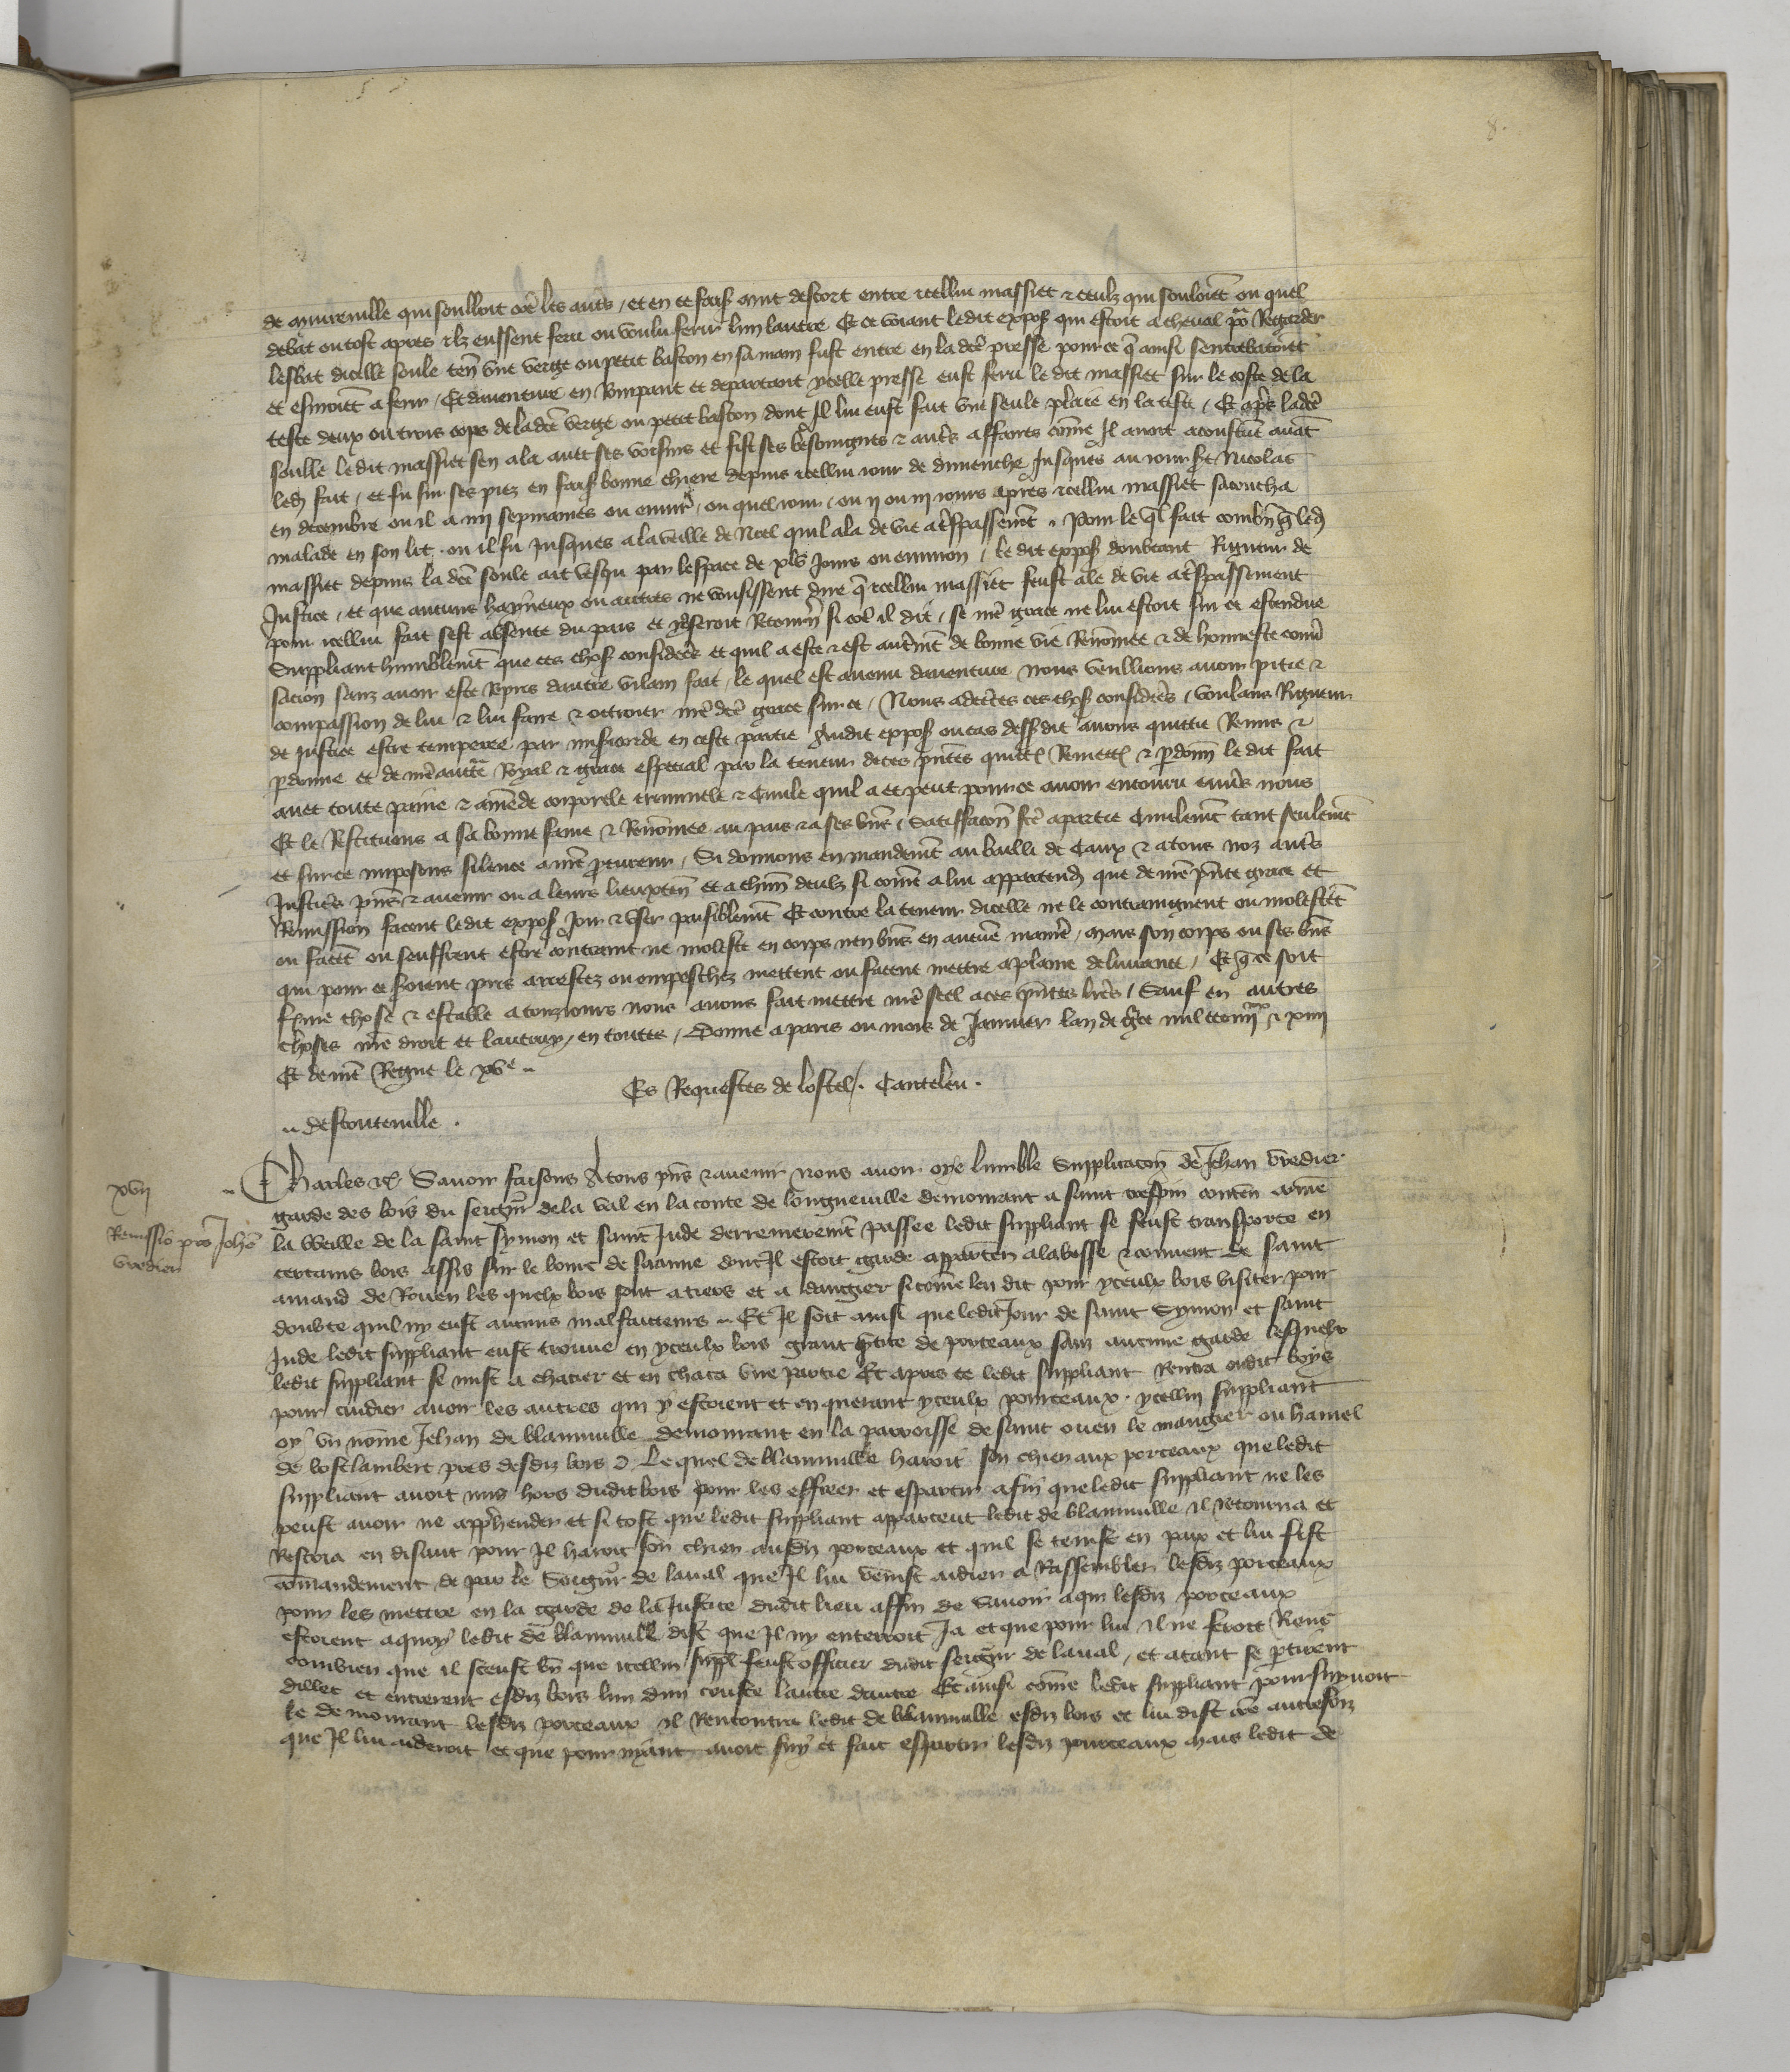 8.
de mureville qui soulloit oue les auts / et en ce fais mut descort entre icellui massiet & ceulz qui souloiēt ou quel
debat ou tost apres ilz eussent feru ou voulu ferir lun lautre Et ce voiant ledit expos qui estoit a cheval por Regarder
lesbat dicelle soule ten une verge ou petit baston en sa main fust entre en la dce presse pour ce q ainsi sentrebatoiēt
et esmoiēt a ferir / Et daventure en Rompant et departant ycelle presse eust feru le dit massiet sur le coste de la
teste deux ou trois cops de ladce verge ou petit baston dont Il lui eust fait une seule plaie en la teste / Et apres ladce
soulle ledit massiet sen ala avec ses voisins et fist ses besoingnes & autrs affaires come Il avoit acoustume avāt
led fait / et fu sur ses piez en fais bonne chiere depuis icellui iour de dimenche Jusques au iour St Nicolas
en decembre ou il a iiij sepmaines ou envir / ou quel iour / ou ij ou iij iours apres icellui massiet sacoucha
malade en son lit . ou il fu Jusques a la veille de Noel quil ala de vie a trespassemt . Pour le ql fait combn q led
massiet depuis la dce soule ait vesqu par lespace de xlv Jours ou environ / le dit expos doubtant Rigueur de
Justice / et que aucuns hayneux ou autres ne vousissent dire q icellui massiet feust ale de vie a trespassement
pour icellui fait sest absente du pais et noseroit Retourn si coe il dit / se nre grace ne lui estoit sur ce estendue
Suppliant humblemt que ces chos considerees et quil a este & est autremt de bonne vie Renomee & de honneste convr
sacion sanz avoir este Repris dautre vilain fait / le quel est avenu daventure nous veullions avoir pitie &
compassion de lui & lui faire & ottroier nre dce grace sur ce / Nous adcertes ces chos considrees / voulans Rigueur
de justice estre temperee par misicorde en ceste partie Audit expos ou cas dessdit avons quittie Remis &
pdonne et de nre aucte Royal & grace especial par la teneur de ces pntes quitts Remetts & pdonn le dit fait
avec toute paine & amēde corporele criminele & Civile quil a et peut pour ce avoir encouru envrs nous
Et le Restituons a sa bonne fame & Renōmee au pais & a ses bns / Satisfacon fce a partie Civilemt tant seulemt
et sur ce imposons silence a nre procureur / Si donnons en mandemt au bailli de Caux & a tous noz autrs
Justicrs pns & avenir ou a leurs lieuxten et a chun deulz si come a lui appartend que de nre pnte grace et
Remission facent ledit expos Joir & user paisiblemt Et contre la teneur dicelle ne le contraingnent ou molestēt
ou facēt ou seuffrent estre contraint ne moleste en corps nen bns en aucune maniē / mais son corps ou ses bns
qui pour ce seroient pris arrestez ou empeschez mettent ou facent mettre a plaine delivrance / Et q ce soit
ferme chose & estable a touziours nous avons fait mettre nre seel a ces pntes lres / Sauf en autres
choses nre droit et lautruy / en toutes / Donne a paris ou mois de Janvier lan de gce mil ccciiijxx & xiiij
Et de nre Regne le xve ..
Es Requestes de lostel / . Cantelen .
.. destouteville .
xvij
Remissio pro Johe
Verdier
Charles &c Savoir faisons A tous pns & avenir nous avoir oye lumble Supplicacon de Jehan Verdier
garde des bois du seigneur de la val en la conte de longueville demourant a saint crespin contenant come
la veille de la saint Symon et saint Jude derrenierement passee ledit suppliant se feust transporte en
certains bois assis sur le bourc de saanne dont Il estoit garde apparten a labesse & convent de saint
amand de Rouen les quelx bois sont a tiers et a dangier si come len dit pour yceulx bois visiter pour
doubte quil ny eust aucuns malfaicteurs .. Et Il soit ainsi que ledit Jour de saint Symon et saint
Jude ledit suppliant eust trouve en yceulx bois grant qtite de porceaux sanz aucune garde lesquelx
ledit suppliant se mist a chacier et en chaca une partie Et apres ce ledit suppliant Rentra oudit boys
pour cuidier avoir les autres qui y estoient et en querant yceulx pourceaux . ycellui suppliant
oy un nōme Jehan de blainville demourant en la parroisse de saint ouen le maugier ou hamel
de bosclambert pres desdiz bois Le quel de blainville haroit son chien aux porceaux que ledit
suppliant avoit mis hors dudit bois pour les effreer et espartir afin que ledit suppliant ne les
peust avoir ne apprehender et si tost que ledit suppliant apparceut ledit de blainville il retourna et
Rescria en disant pour Il haroit son chien ausdiz porceaux et quil se tenist en paix et lui fist
cōmandement de par le Seignr de laval que Il lui venist aidier a Rassembler lesdiz porceaux
pour les mettre en la garde de la Justice dudit lieu affin de Savoir a qui lesdiz porceaux
estoient a quoy ledit de blainville dist que Il ny entreroit Ja et que pour lui il ne feroit Riens
combien que il sceust bn que icellui suppl feust officier dudit seigneur de laval / et atant se ptirent
dillec et entrerent esdiz bois lun dun couste lautre dautre Et ainsi cōme ledit suppliant poursuyvoit
le demourant lesdiz porceaux il Rencontra ledit de blainville esdiz bois et lui dist coe autresfoiz
que Il lui aideroit et que pour nyant avoit suy et fait espartir lesdiz pourceaux Mais ledit de